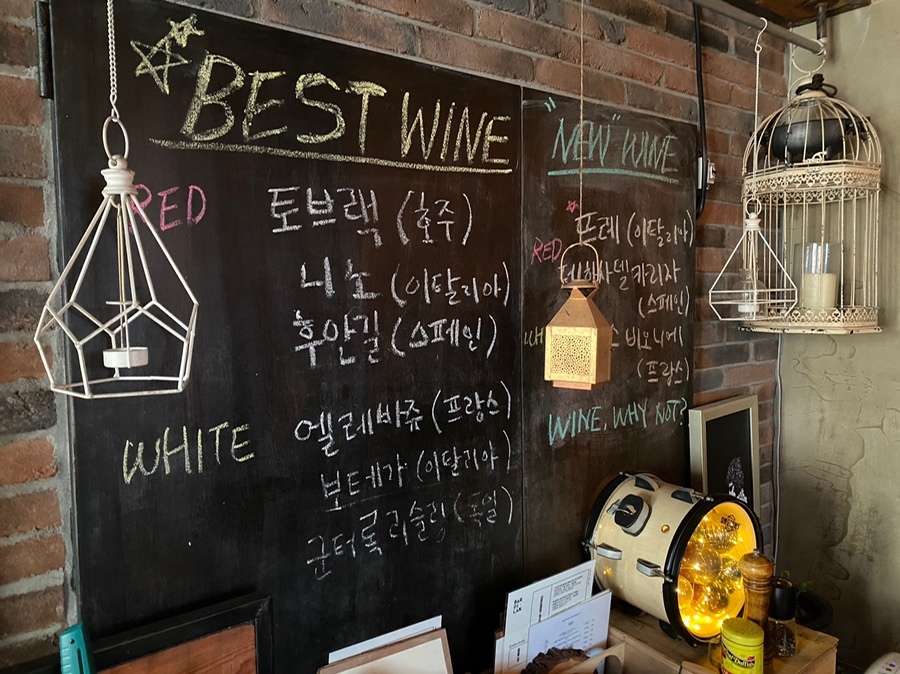 BEST WINE
RED 토브랙 (호주)
니노 (이탈리아)
후안길 (스페인)
WHITE 엘레바쥬 (프랑스)
보테가 (이탈리아)
군터록 리슬링 (독일)
"NEW" WINE
프레 (이탈리아)
RED
델카리자
(스페인)
비오니에
(프랑스)
WINE, WHY NOT?